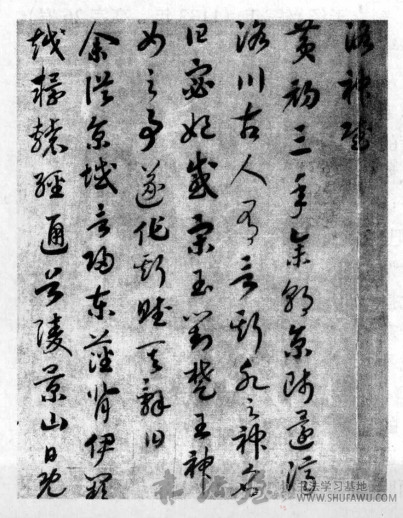 洛神賦
黃初三年余朝京師還濟
洛川古人有言斯水之神名
曰宓妃感宋玉對楚王神
女之事遂作斯賦其辭曰
余從京域言歸東藩背伊闕
越轘轅經通谷陵景山日既
书法学习基地
WWW.SHUFAWU.COM